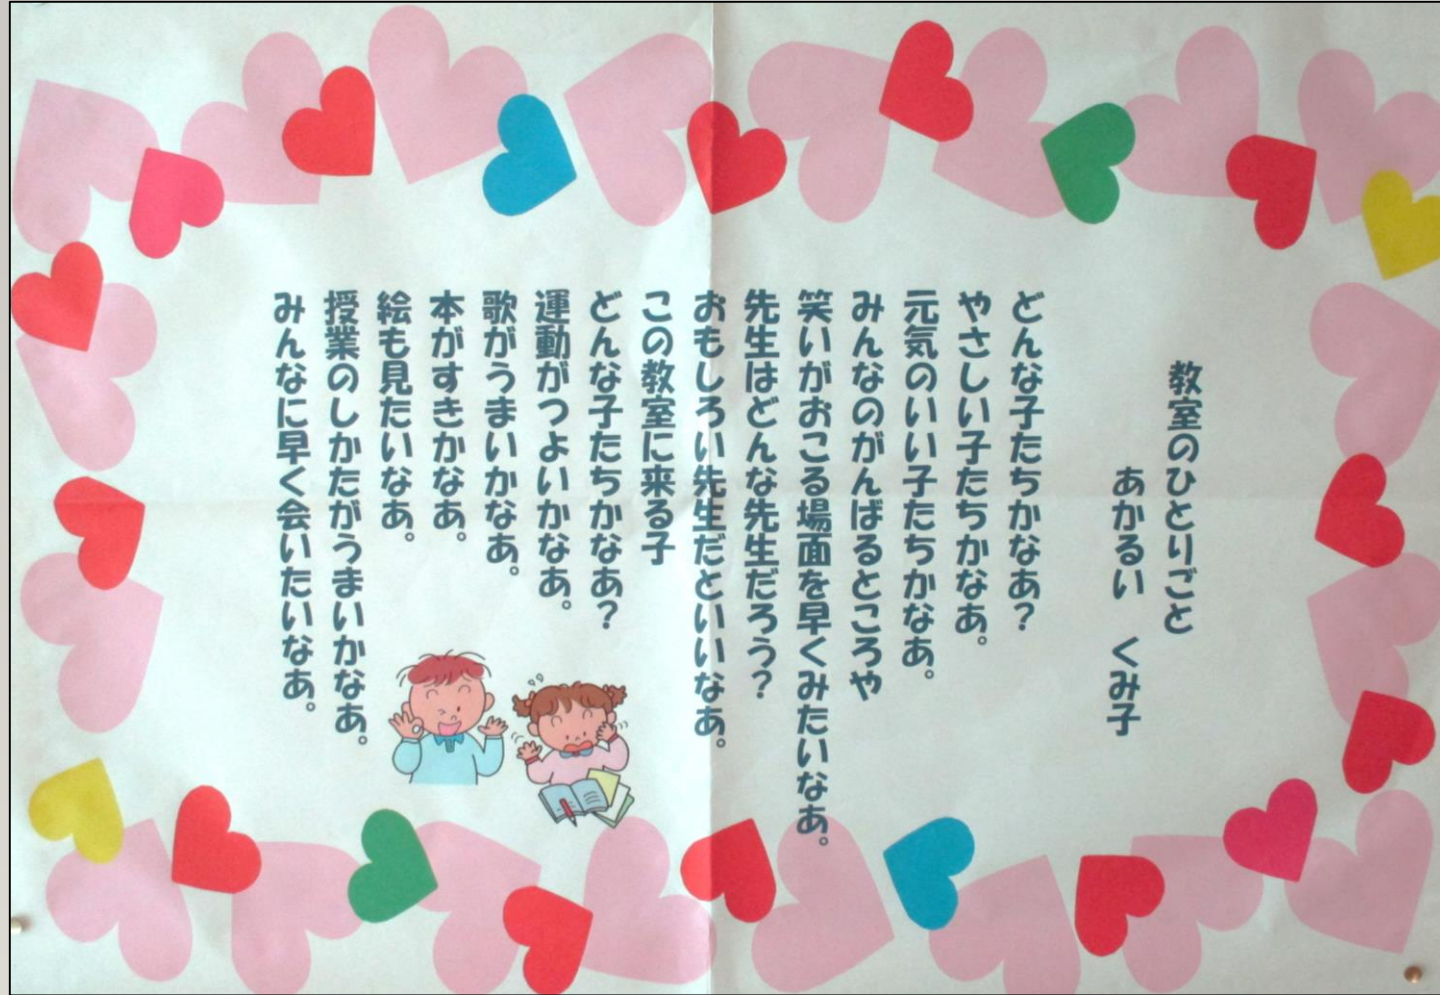 教室のひとりごと
あかるい　くみ子
どんな子たちかなあ？
やさしい子たちかなあ。
元気のいい子たちかなあ。
みんなのがんばるところや
笑いがおこる場面を早くみたいなあ。
先生はどんな先生だろう？
おもしろい先生だといいなあ。
この教室に来る子
どんな子たちかなあ？
運動がつよいかなあ。
歌がうまいかなあ。
本がすきかなあ。
絵も見たいなあ。
授業のしかたがうまいかなあ。
みんなに早く会いたいなあ。